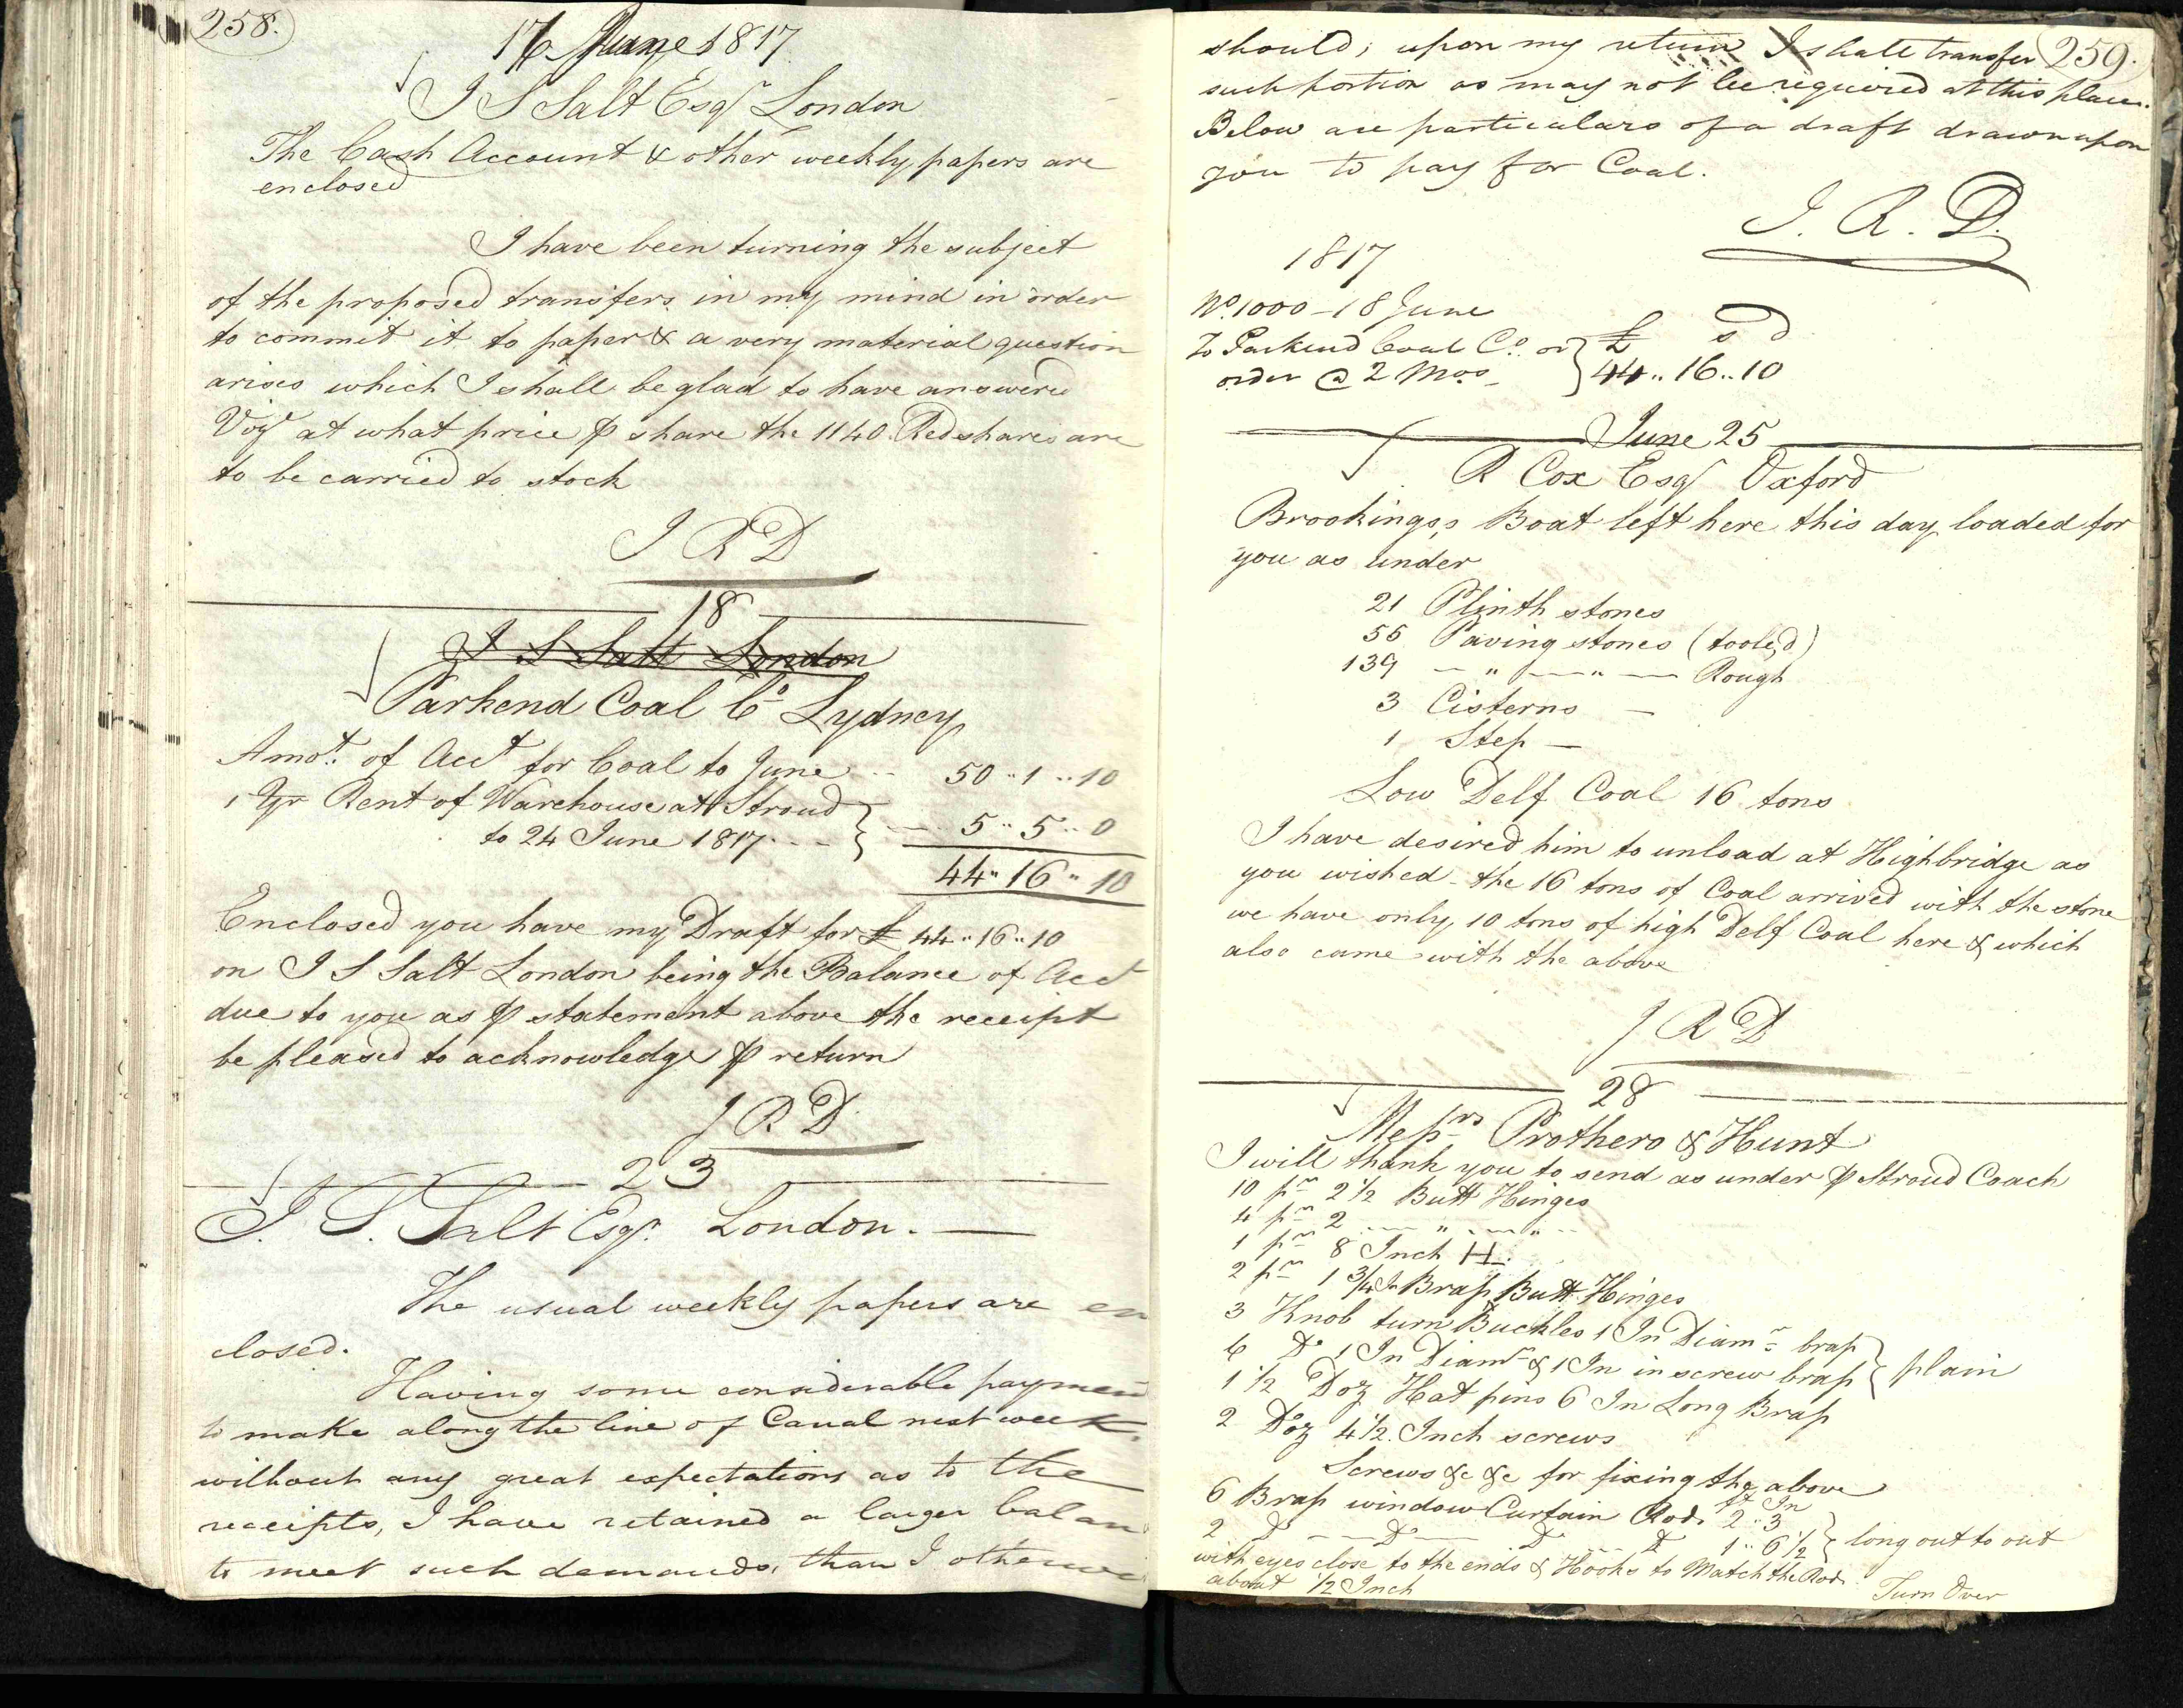 258.
16 June 1817
I S Salt Esqr London
The Cash Account & other weekly papers are
enclosed
I have been turning the subject
of the proposed transfers in my mind in order
to commit it to paper & a very material question
arises which I shall be glad to have answered
Vizt at what price ⅌ share the 1140 Red shares are
to be carried to stock
I R D
18
I S Salt London
Parkend Coal Co Lydney
Amot. of Acct for Coal to June .. 50 .. 1 .. 10
1 Yr Rent of Warehouse at Stroud
to 24 June 1817 - - } 5 .. 5 .. 0
44 .. 16 .. 10
Enclosed you have my Draft for £ 44 .. 16 .. 10
on I S Salt London being the Balance of Acct
due to you as ⅌ statement above the receipt
be pleased to acknowledge ⅌ return
J R D
23
I. S. Salt Esqr. London. —
The usual weekly papers are en
closed.
Having some considerable paymen
to make along the line of Canal next week,
without any great expectations as to the
receipts, I have retained a larger balan
to meet such demands, than I otherwi
259.
should; upon my return I shall transfer
such portion as may not be required at this place.
Below are particulars of a draft drawn upon
you to pay for Coal.
I. R. D.
1817
No. 1000 – 18 June
To Parkend Coal Co. or } £ s d
order @ 2 Mos } 44 .. 16 .. 10
June 25
R Cox Esqr Oxford
Brookings's Boat left here this day loaded for
you as under
21 Plinth stones
55 Paving stones (tooled)
139 — " — " — Rough
3 Cisterns —
1 Step —
Low Delf Coal 16 tons
I have desired him to unload at Highbridge as
you wished - the 16 tons of Coal arrived with the stone
we have only 10 tons of high Delf Coal here & which
also came with the above
J R D
28
Messrs Prothero & Hunt
I will thank you to send as under ⅌ Stroud Coach
10 pr 2 1/2 Butt Hinges
4 pr 2 — " — " —
1 pr 8 Inch H.
2 pr 1 3/4 In Brass Butt Hinges
3 Knob turn Buckles 1 In Diamr brass
6 Do 1 In Diamr & 1 In in screw brass } plain
1 1/2 Doz Hat pins 6 In Long Brass
2 Doz 4 1/2 Inch screws
Screws &c &c for fixing the above
6 Brass window Curtain Rods 2 ft .. 3 In
2 Do — Do — Do - - Do 1 .. 6 1/2 } long out to out
with eyes close to the ends & Hooks to Match the Rods
about 1/2 Inch
Turn Over